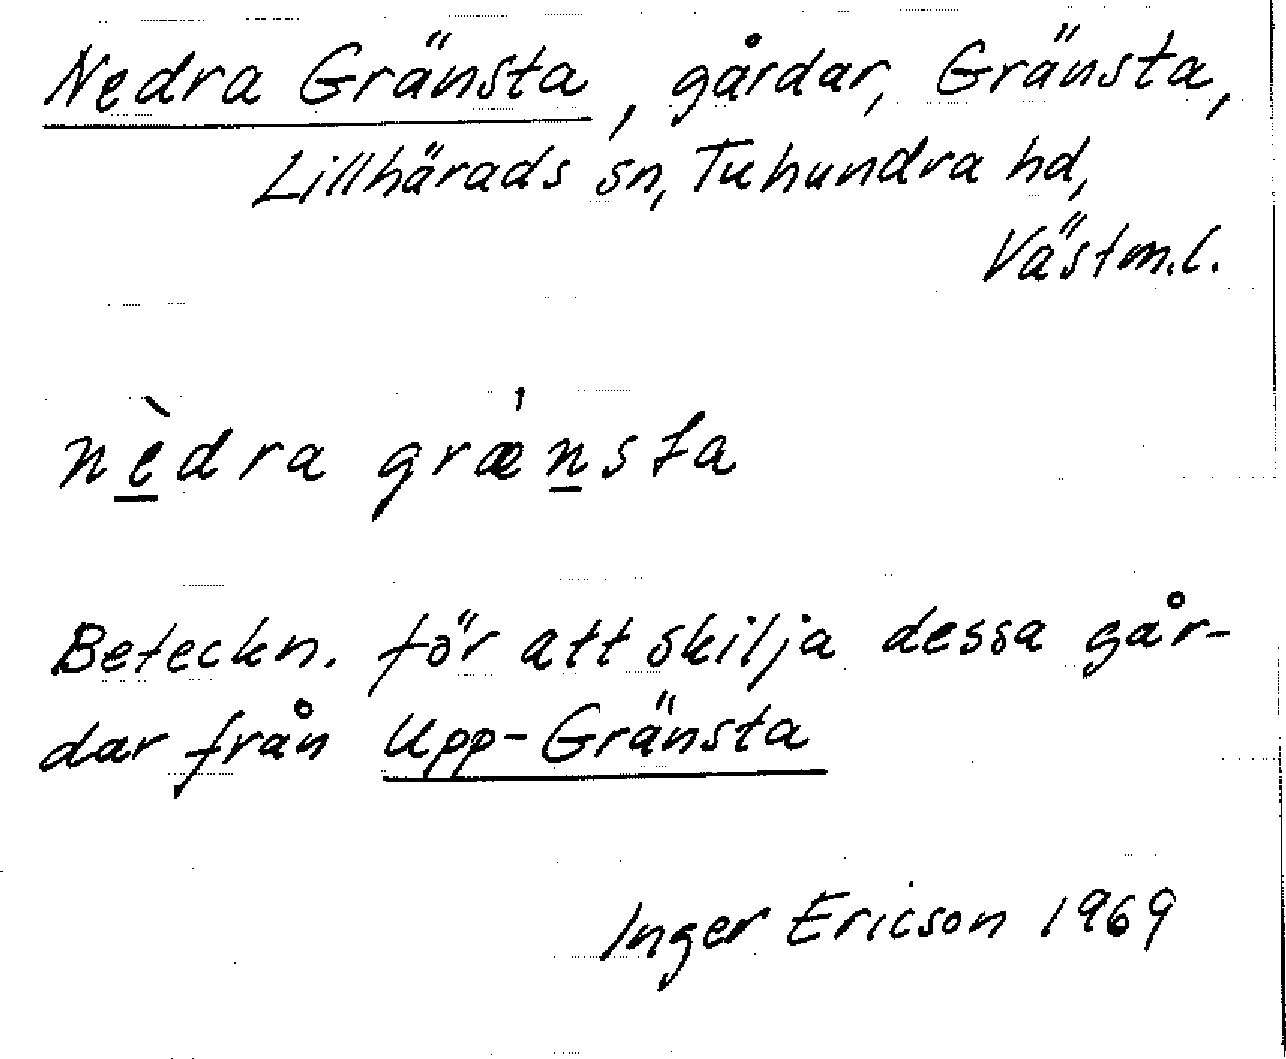 Nedra Gränsta, gårdar, Gränsta,
Lillhärads sn, Tuhundra hd,
Västm.l.
nèdra grǽnsta
Beteckn. för att skilja dessa går-
dar från Upp-Gränsta
Inger Ericson 1969